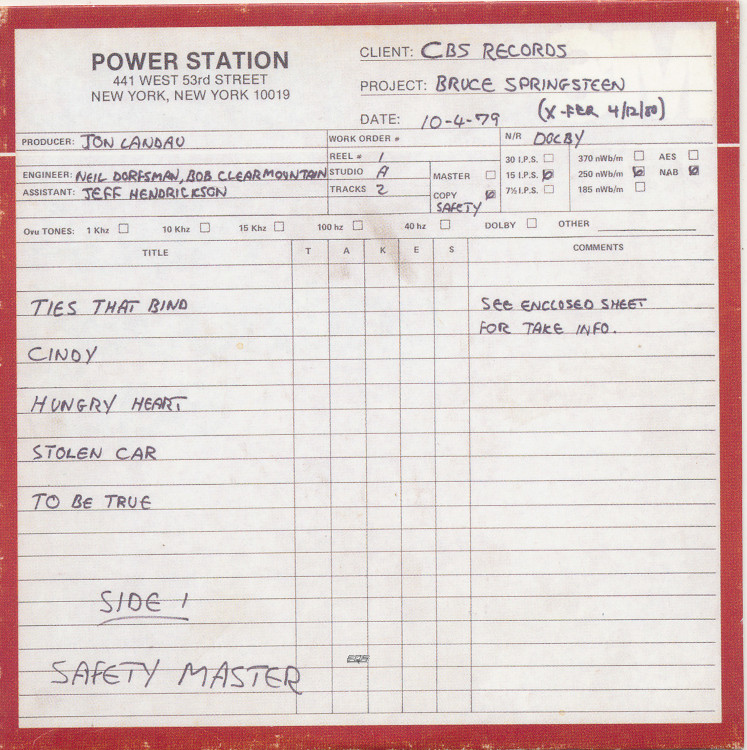 POWER STATION
441 WEST 53rd STREET
NEW YORK, NEW YORK 10019
CLIENT: CBS RECORDS
PROJECT: BRUCE SPRINGSTEEN
DATE: 10-4-79 (X-FER 4/12/80)
PRODUCER: JON LANDAU
WORK ORDER #
N/R DOLBY
REEL # 1
ENGINEER: NEIL DORFSMAN, BOB CLEARMOUNTAIN
STUDIO A
ASSISTANT: JEFF HENDRICKSON
TRACKS 2
MASTER
COPY
SAFETY
30 I.P.S. 370 nWb/m AES
15 I.P.S. 250 nWb/m NAB
7½ I.P.S. 185 nWb/m
Ovu TONES: 1 Khz 10 Khz 15 Khz 100 hz 40 hz DOLBY OTHER
TITLE T A K E S COMMENTS
TIES THAT BIND SEE ENCLOSED SHEET
FOR TAKE INFO.
CINDY
HUNGRY HEART
STOLEN CAR
TO BE TRUE
SIDE 1
SAFETY MASTER